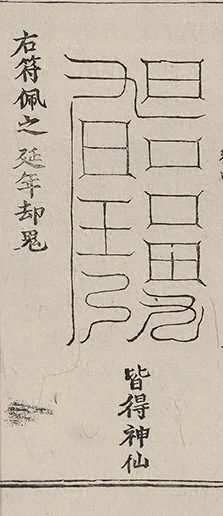 皆得神仙
右符佩之延年却鬼